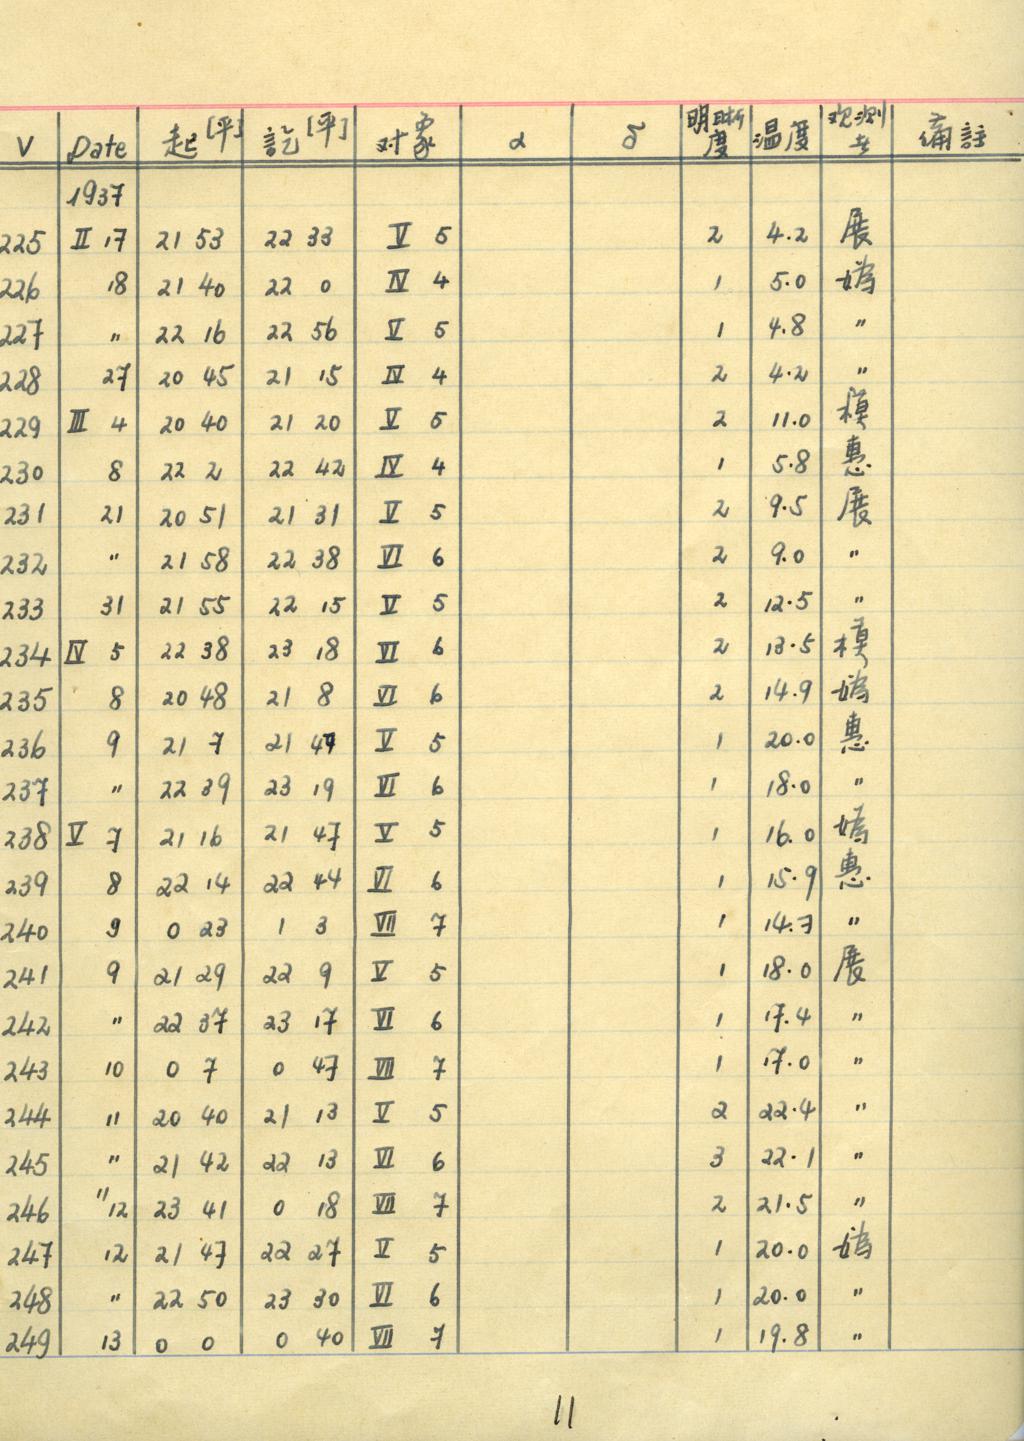 V Date 起[平] 訖[平] 对象 α δ 明晰度 温度 观測者 備註
1937
225 II 17 21 53 22 33 V 5 2 4.2 展
226 18 21 40 22 0 IV 4 1 5.0 嬀
227 " 22 16 22 56 V 5 1 4.8 "
228 27 20 45 21 15 IV 4 2 4.2 "
229 III 4 20 40 21 20 V 5 2 11.0 模
230 8 22 2 22 42 IV 4 1 5.8 惠
231 21 20 51 21 31 V 5 2 9.5 展
232 " 21 58 22 38 VI 6 2 9.0 "
233 31 21 55 22 15 V 5 2 12.5 "
234 IV 5 22 38 23 18 VI 6 2 13.5 模
235 8 20 48 21 8 VI 6 2 14.9 嬀
236 9 21 7 21 47 V 5 1 20.0 惠
237 " 22 39 23 19 VI 6 1 18.0 "
238 V 7 21 16 21 47 V 5 1 16.0 嬀
239 8 22 14 22 44 VI 6 1 15.9 惠
240 9 0 23 1 3 VII 7 1 14.7 "
241 9 21 29 22 9 V 5 1 18.0 展
242 " 22 37 23 17 VI 6 1 17.4 "
243 10 0 7 0 47 VII 7 1 17.0 "
244 11 20 40 21 13 V 5 2 22.4 "
245 " 21 42 22 13 VI 6 3 22.1 "
246 "12 23 41 0 18 VII 7 2 21.5 "
247 12 21 47 22 27 V 5 1 20.0 嬀
248 " 22 50 23 30 VI 6 1 20.0 "
249 13 0 0 0 40 VII 7 1 19.8 "
11